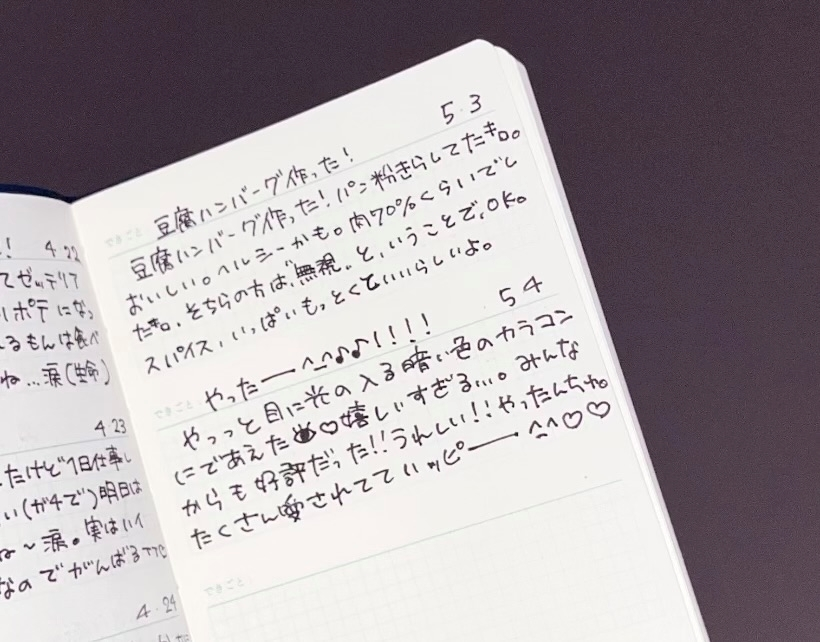 ! 4.22
てゼッテリア
リポテになっ
るもんは食べ
ね…涙(生命)
4.23
たけど1日仕事し
い(ガチで)明日は
ね〜涙。実はハイ
なのでがんばる
4.24
5.3
できごと 豆腐ハンバーグ作った!
豆腐ハンバーグ作った!パン粉きらしてた
おいしい。ヘルシーかも。肉70%くらいでし
そちらの方は、無視。と、いうことで、OK。
スパイス、いっぱいもっとくといいらしいよ。
5 4
できごと やったー^_^♪♪!!!!
やっっと目に光の入る暗い色のカラコン
にであえた♡嬉しいすぎる...。みんな
からも好評だった!!うれしい!!やったんちゃ。
たくさん愛されててハッピー^_^♡♡
できごと